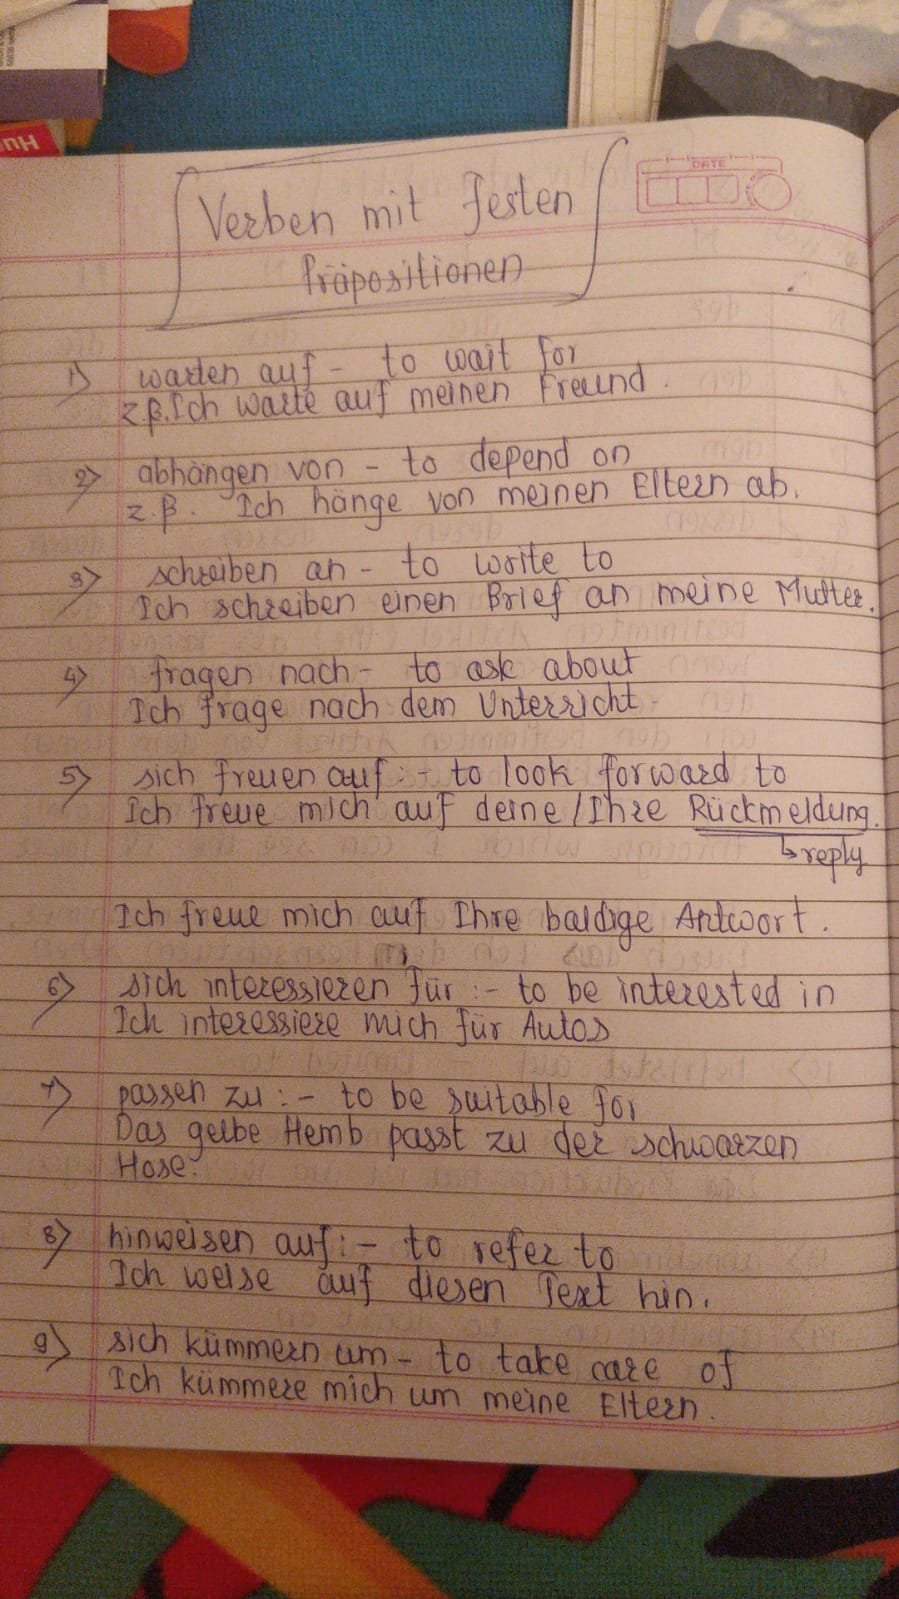 DATE
Verben mit festen
Präpositionen
1) warten auf - to wait for
z.B. Ich warte auf meinen Freund.
2) abhängen von - to depend on
z.B. Ich hänge von meinen Eltern ab.
3) schreiben an - to write to
Ich schreiben einen Brief an meine Mutter.
4) fragen nach - to ask about
Ich frage nach dem Unterricht.
5) sich freuen auf :- to look forward to
Ich freue mich auf deine/Ihre Rückmeldung.
↳ reply
Ich freue mich auf Ihre baldige Antwort.
6) sich interessieren für :- to be interested in
Ich interessiere mich für Autos
7) passen zu :- to be suitable for
Das gelbe Hemb passt zu der schwarzen
Hose.
8) hinweisen auf :- to refer to
Ich weise auf diesen Text hin.
9) sich kümmern um - to take care of
Ich kümmere mich um meine Eltern.